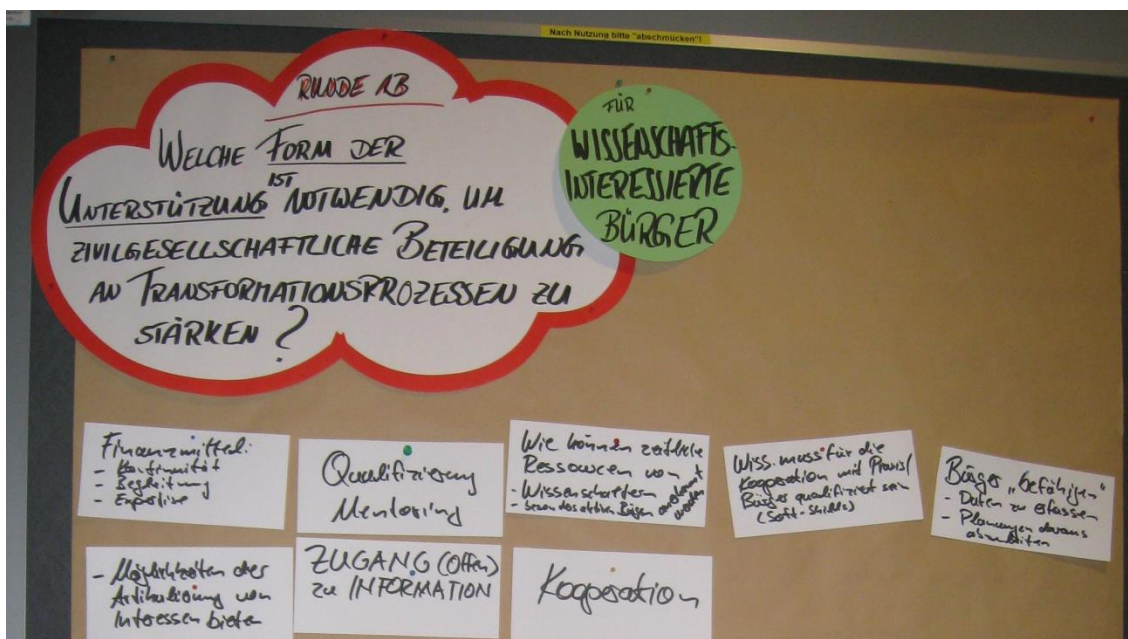 Nach Nutzung bitte "abschmücken"!
RUNDE AB
WELCHE FORM DER
UNTERSTÜTZUNG IST NOTWENDIG, UM
ZIVILGESELLSCHAFTLICHE BETEILIGUNG
AN TRANSFORMATIONSPROZESSEN ZU
STÄRKEN?
FÜR
WISSENSCHAFTS-
INTERESSIERTE
BÜRGER
Finanzmittel:
- Kontinuität
- Begleitung
- Expertise
Qualifizierung
Mentoring
Wie können zeitliche
Ressourcen von
- Wissenschaftlern
- besonders aktiven Bürgern
werden
Wiss. muss für die
Kooperation mit Praxis/
Bürger qualifiziert sein
(Soft-Skills)
Bürger "befähigen"
- Daten zu erfassen
- Planungen daraus
abzuleiten
- Möglichkeiten der
Artikulierung von
Interessen bieten
ZUGANG (Offen)
zu INFORMATION
Kooperation